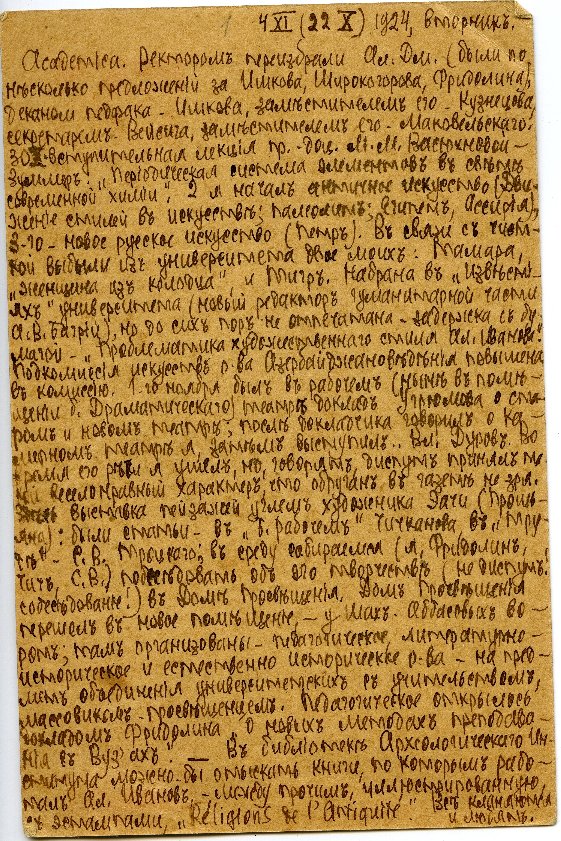 4 XI (22 X) 1924, вторникъ. —
Academica. Ректоромъ переизбрали Ал. Дм. (были по
нѣсколько предложеній за Ишкова, Широкогорова, Фридолина),
деканомъ педфака - Ишкова, замѣстителемъ его - Кузнецова,
секретаремъ Вейсига, замѣстителемъ его - Маковельскаго.
30 X вступительная лекція пр.-доц. М. М. Васюхновой -
Зуммеръ: „Періодическая система элементовъ въ свѣтѣ
современной химіи". 2 я началъ античное искусство (Дви-
женіе стилей въ искусствѣ; палеолитъ; Египетъ, Ассирія),
3-го - новое русское искусство (Петръ). Въ связи съ чист-
кой выбыли изъ университета двое моихъ: Тамара,
„женщина изъ колодца", и Тигръ. Набрана въ „Извѣсті-
яхъ" университета (новый редакторъ гуманитарной части
А. В. Багрій), но до сихъ поръ не отпечатана - задержка съ бу-
магой - „Проблематика художественнаго стиля Ал. Иванова".
Подкомиссія искусствъ о-ва Азербайджановѣдѣнія повышена
въ комиссію. 1-го ноября былъ въ рабочемъ (нынѣ въ помѣ-
щеніи б. Драматическаго) театрѣ докладъ о ста-
ромъ и новомъ театрѣ; послѣ докладчика говорилъ о ка-
мерномъ театрѣ я, затѣмъ выступилъ.. Вл. Дуровъ. Во
время его рѣчи я ушелъ, но, говорятъ, диспутъ принялъ та-
кой веселонравный характеръ, что обруганъ въ газетѣ не зря.
выставка пейзажей углемъ художника Зачи
: были статьи - въ „Б. рабочемъ" Чичканова, въ „Тру-
дѣ" - С. В. Троцкаго; въ среду собираемся (я, Фридолинъ,
Чич., С. В.) побесѣдовать объ его творчествѣ (не диспутъ,
собесѣдованіе!) въ Домѣ Просвѣщенія. Домъ Просвѣщенія
перешелъ въ новое помѣщеніе, - у Шахъ-Аббасовыхъ во-
ротъ; тамъ организованы - педагогическое, литературно-
историческое и естественно историческое о-ва - на пред-
метъ объединенія университетскихъ съ учительствомъ,
массовикомъ-просвѣщенцемъ. Педагогическое открылось
докладомъ Фридолина „О новыхъ методахъ преподава-
нія въ Вуз'ахъ". — Въ библіотекѣ Археологическаго Ин-
ститута можно бы отыскать книги, по которымъ рабо-
талъ Ал. Ивановъ, - между прочимъ, иллюстрированную,
съ эстампами, „Religions de l'Antiquité". Всѣ кланяются
и любятъ.